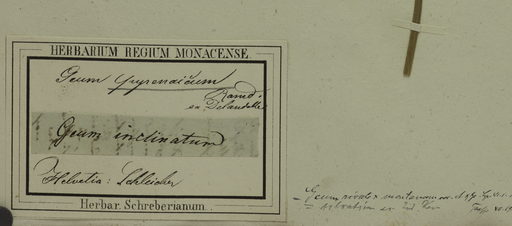 HERBARIUM REGIUM MONACENSE.
Geum pyrenaicum
Ramd.
ex Delandelle
Geum inclinatum
Helvetia: Schleicher
Herbar. Schreberianum.
= Geum rivale × montanum